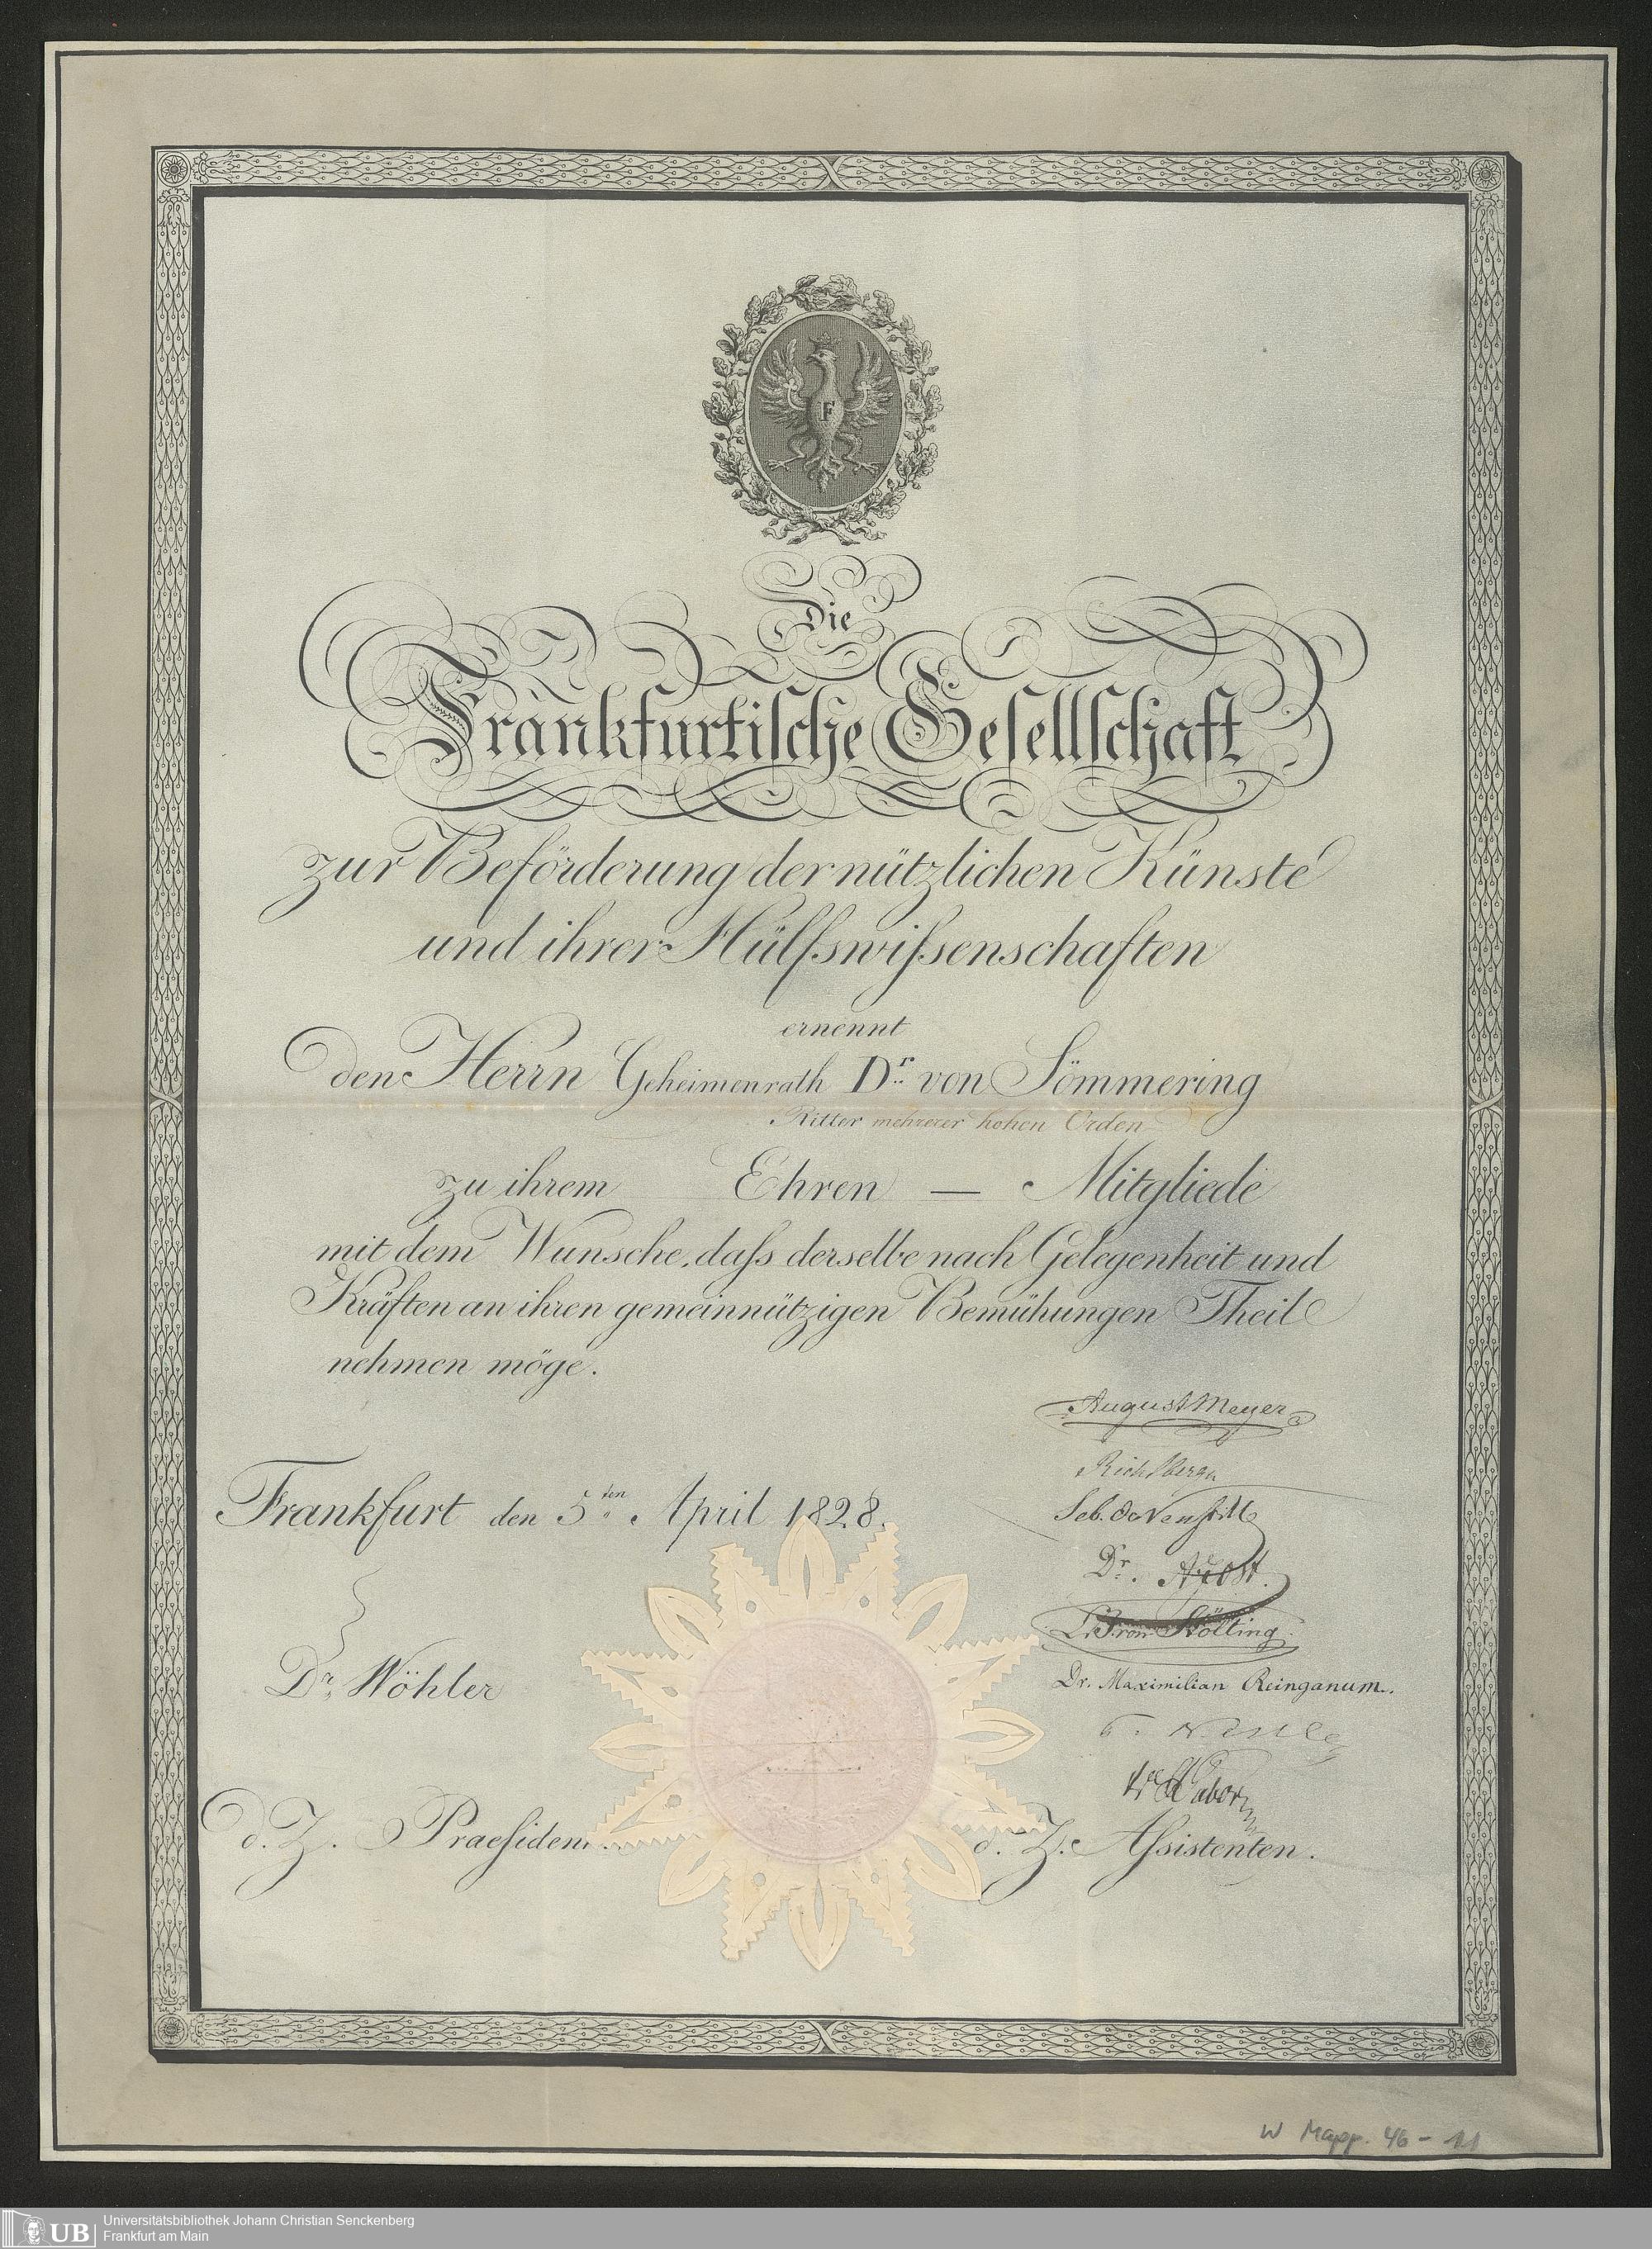 F
Die
Frankfurtische Gesellschaft
zur Beförderung der nützlichen Künste
und ihrer Hülfswißenschaften
ernennt
den Herrn Geheimenrath Dr. von Sömmering
Ritter mehrerer hohen Orden
zu ihrem Ehren — Mitgliede
mit dem Wunsche, daß derselbe nach Gelegenheit und
Kräften an ihren gemeinnützigen Bemühungen Theil
nehmen möge.
August Meyer
Frankfurt den 5ten April 1828.
Seb. de Neufville
Dr.
von Stölting
Dr. Wöhler
Dr. Maximilian Reinganum.
d. Z. Praesident
d. Z. Assistenten.
W Mapp. 46 - 11
UB
Universitätsbibliothek Johann Christian Senckenberg
Frankfurt am Main